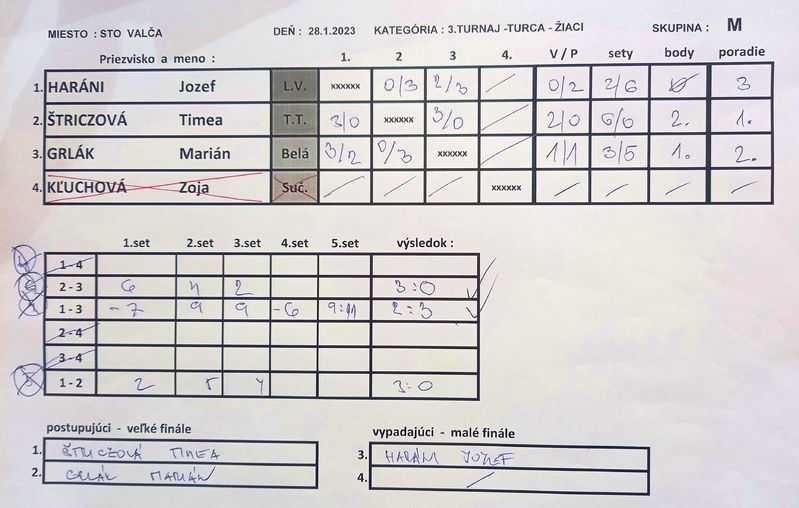 MIESTO : STO VALČA DEŇ : 28.1.2023 KATEGÓRIA : 3.TURNAJ -TURCA - ŽIACI SKUPINA : M
Priezvisko a meno : 1. 2 3 4. V / P sety body poradie
1. HARÁNI Jozef L.V. xxxxxx 0/3 2/3 / 0/2 2/6 0 3
2. ŠTRICZOVÁ Timea T.T. 3/0 xxxxxx 3/0 / 2/0 6/0 2. 1.
3. GRLÁK Marián Belá 3/2 0/3 xxxxxx / 1/1 3/5 1. 2.
4. KĽUCHOVÁ Zoja Suč. / / / xxxxxx / / / /
1.set 2.set 3.set 4.set 5.set výsledok :
1 - 4
2 - 3 6 4 2 3:0
1 - 3 -7 9 9 -6 9:11 2:3
2 - 4
3 - 4
1 - 2 2 5 4 3:0
postupujúci - veľké finále vypadajúci - malé finále
1. ŠTRICZOVÁ TIMEA 3. HARÁNI JOZEF
2. GRLÁK MARIÁN 4. /